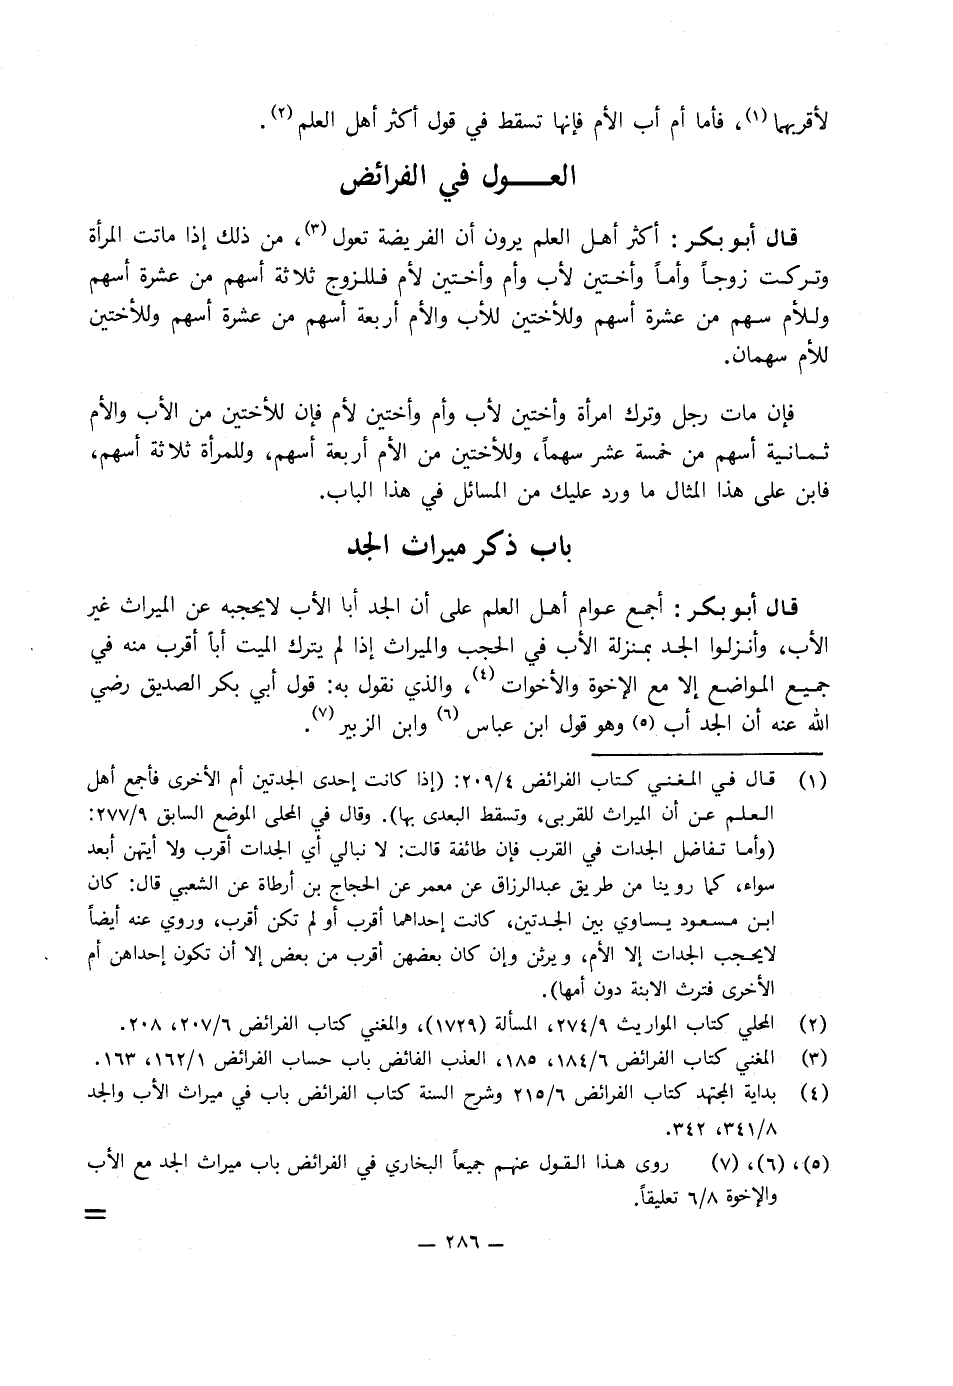 لأقربهما (١)، فأما أم أب الأم فإنها تسقط في قول أكثر أهل العلم (٢).
العـــول في الفرائض
قال أبو بكر : أكثر أهل العلم يرون أن الفريضة تعول (٣)، من ذلك إذا ماتت المرأة
وتركت زوجاً وأماً وأختين لأب وأم وأختين لأم فللزوج ثلاثة أسهم من عشرة أسهم
وللأم سهم من عشرة أسهم وللأختين للأب والأم أربعة أسهم من عشرة أسهم وللأختين
للأم سهمان.
فإن مات رجل وترك امرأة وأختين لأب وأم وأختين لأم فإن للأختين من الأب والأم
ثمانية أسهم من خمسة عشر سهماً، وللأختين من الأم أربعة أسهم، وللمرأة ثلاثة أسهم،
فابن على هذا المثال ما ورد عليك من المسائل في هذا الباب.
باب ذكر ميراث الجد
قال أبو بكر : أجمع عوام أهل العلم على أن الجد أبا الأب لايحجبه عن الميراث غير
الأب، وأنزلوا الجد بمنزلة الأب في الحجب والميراث إذا لم يترك الميت أباً أقرب منه في
جميع المواضع إلا مع الإخوة والأخوات (٤)، والذي نقول به: قول أبي بكر الصديق رضي
الله عنه أن الجد أب (٥) وهو قول ابن عباس (٦) وابن الزبير (٧).
(١) قال في المغني كتاب الفرائض ٢٠٩/٤: (إذا كانت إحدى الجدتين أم الأخرى فأجمع أهل
العلم عن أن الميراث للقربى، وتسقط البعدى بها). وقال في المحلى الموضع السابق ٢٧٧/٩:
(وأما تفاضل الجدات في القرب فإن طائفة قالت: لا نبالي أي الجدات أقرب ولا أيتهن أبعد
سواء، كما روينا من طريق عبدالرزاق عن معمر عن الحجاج بن أرطاة عن الشعبي قال: كان
ابن مسعود يساوي بين الجدتين، كانت إحداهما أقرب أو لم تكن أقرب، وروي عنه أيضاً
لايحجب الجدات إلا الأم، ويرثن وإن كان بعضهن أقرب من بعض إلا أن تكون إحداهن أم
الأخرى فترث الابنة دون أمها).
(٢) المحلي كتاب المواريث ٢٧٤/٩، المسألة (١٧٢٩)، والمغني كتاب الفرائض ٢٠٧/٦، ٢٠٨.
(٣) المغني كتاب الفرائض ١٨٤/٦، ١٨٥، العذب الفائض باب حساب الفرائض ١٦٢/١، ١٦٣.
(٤) بداية المجتهد كتاب الفرائض ٢١٥/٦ وشرح السنة كتاب الفرائض باب في ميراث الأب والجد
٣٤١/٨، ٣٤٢.
(٥)، (٦)، (٧) روى هذا القول عنهم جميعاً البخاري في الفرائض باب ميراث الجد مع الأب
والإخوة ٦/٨ تعليقاً.
=
— ٢٨٦ —